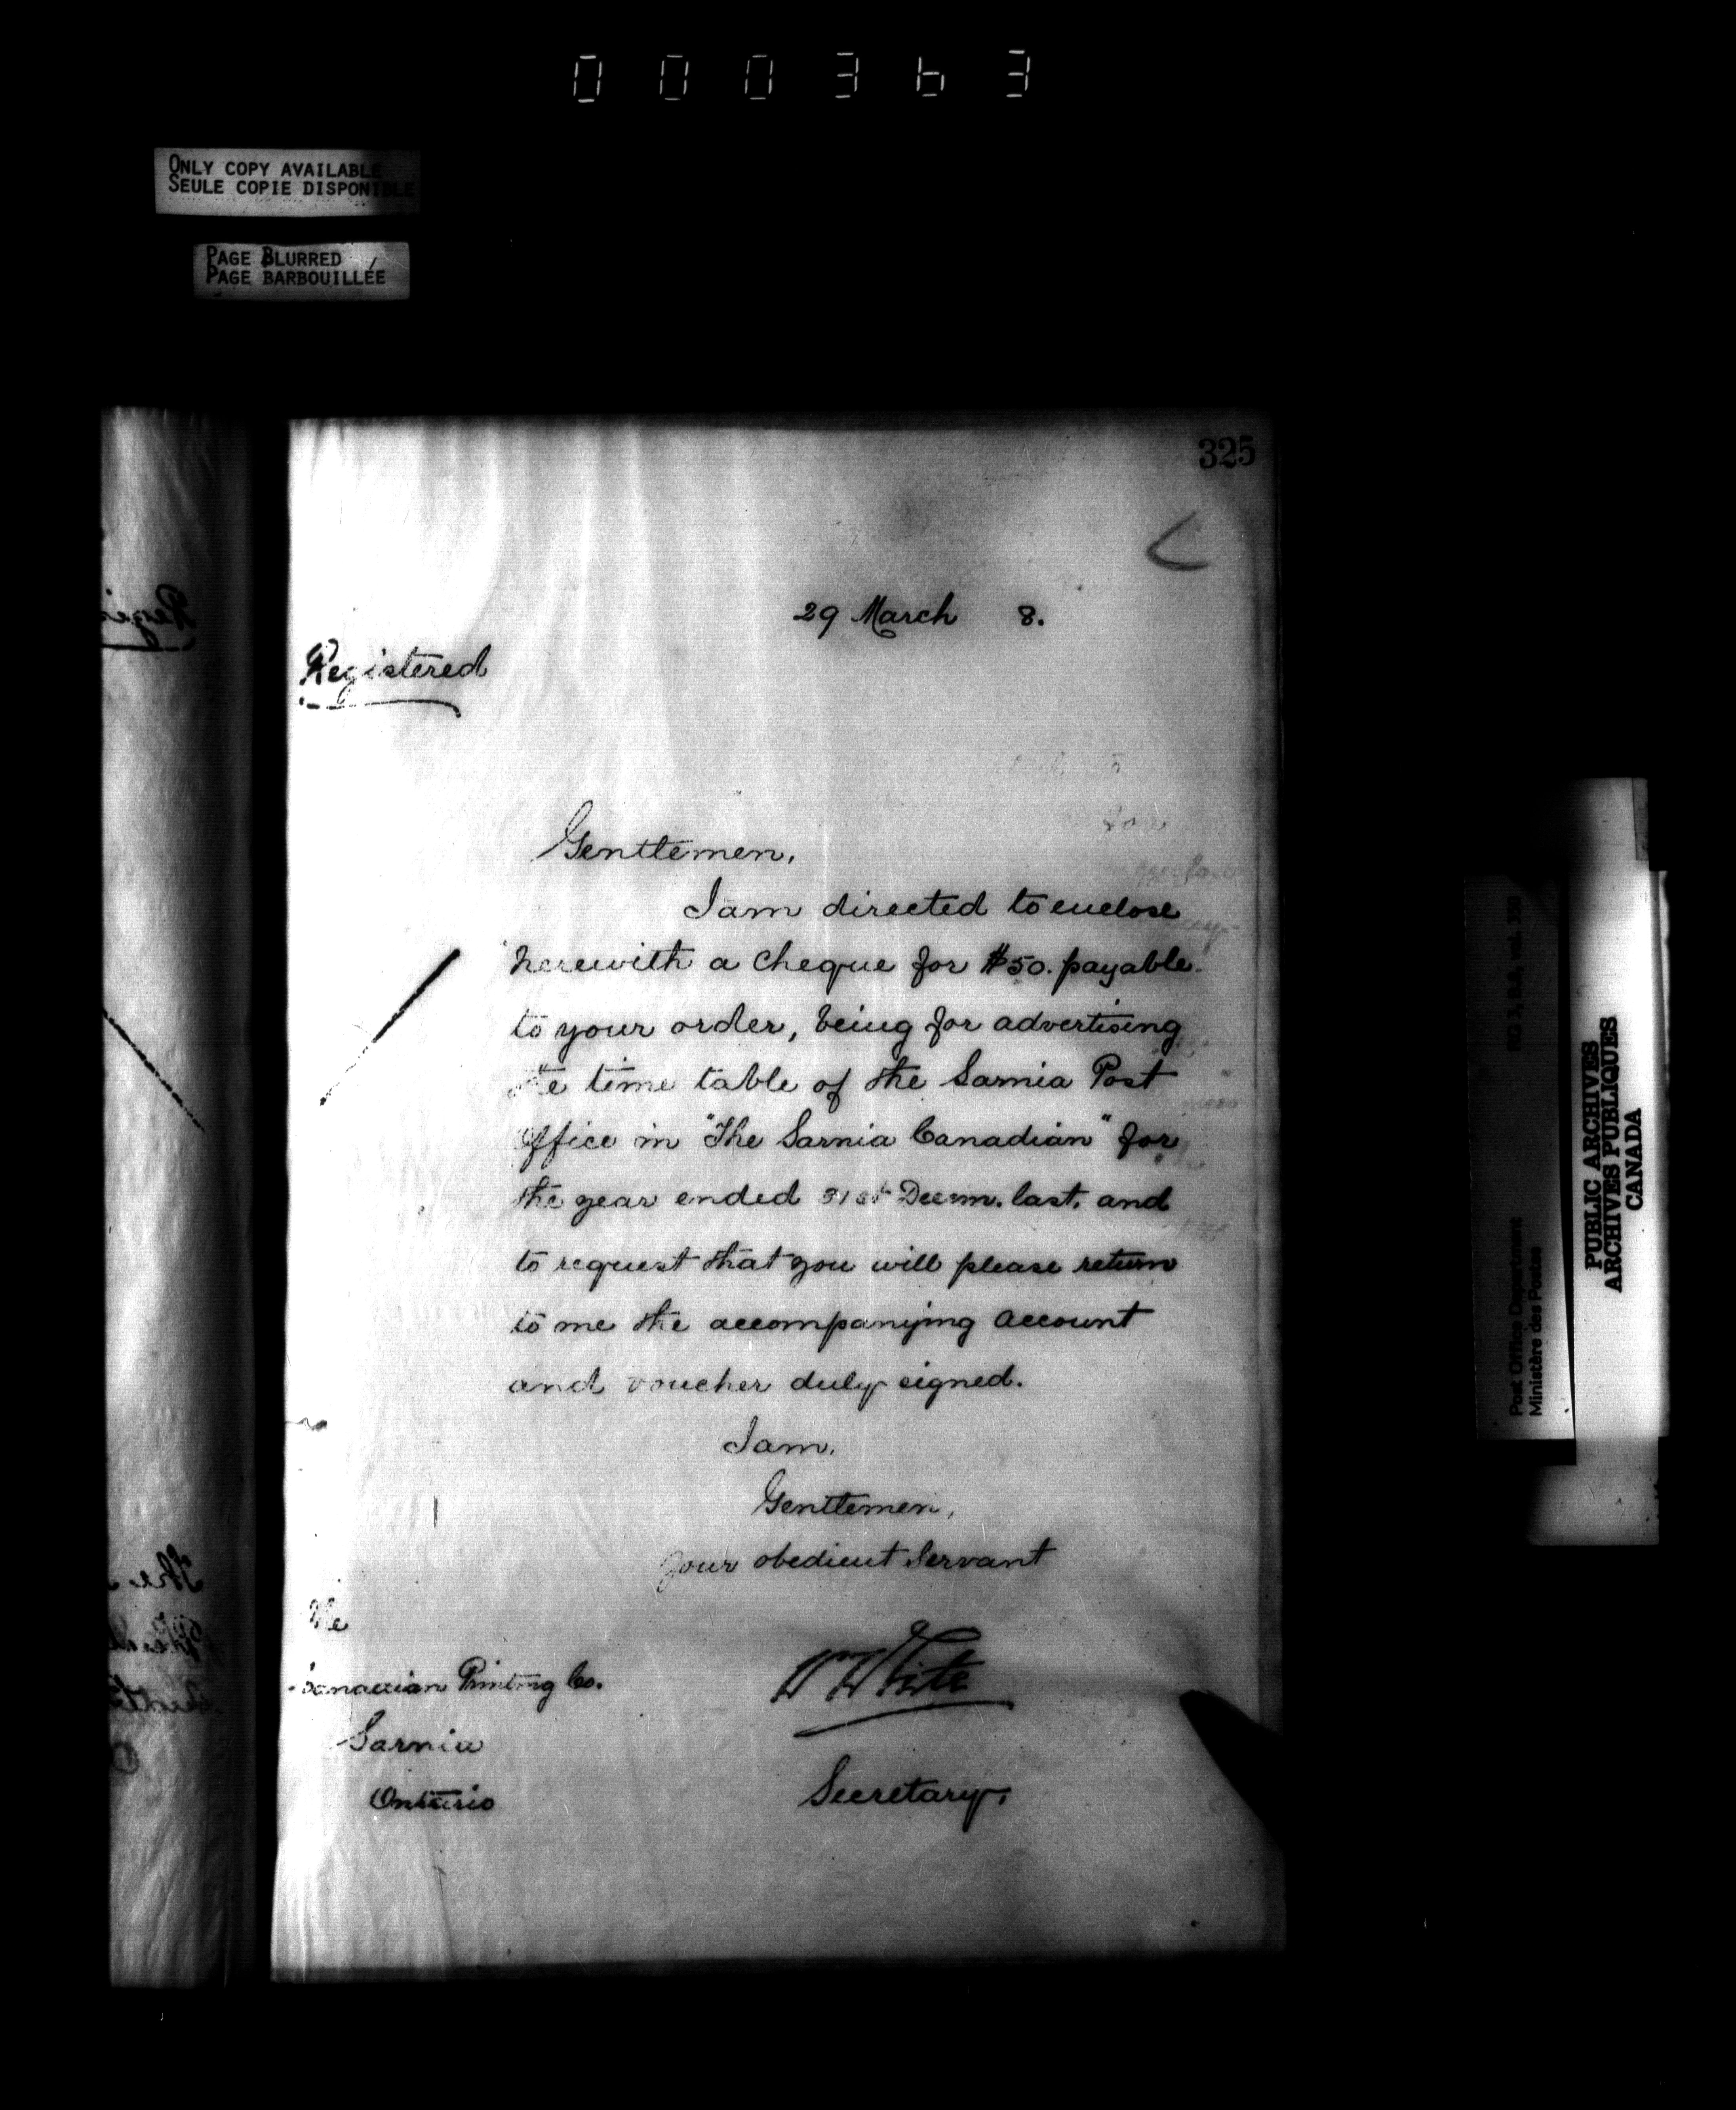 000363
ONLY COPY AVAILABLE
SEULE COPIE DISPONIBLE
PAGE BLURRED
PAGE BARBOUILLÉE
325
29 March 8.
Registered
Gentlemen,
I am directed to enclose
herewith a cheque for $50. payable
to your order, being for advertising
the time table of the Sarnia Post
Office in "The Sarnia Canadian" for
the year ended 31st Decem. last, and
to request that you will please return
to me the accompanying account
and voucher duly signed.
I am,
Gentlemen,
Your obedient Servant
The
Canadian Printing Co.
Sarnia
Ontario
W White
Secretary.
RG 3, B.A, vol. 390
Post Office Department
Ministère des Postes
PUBLIC ARCHIVES
ARCHIVES PUBLIQUES
CANADA